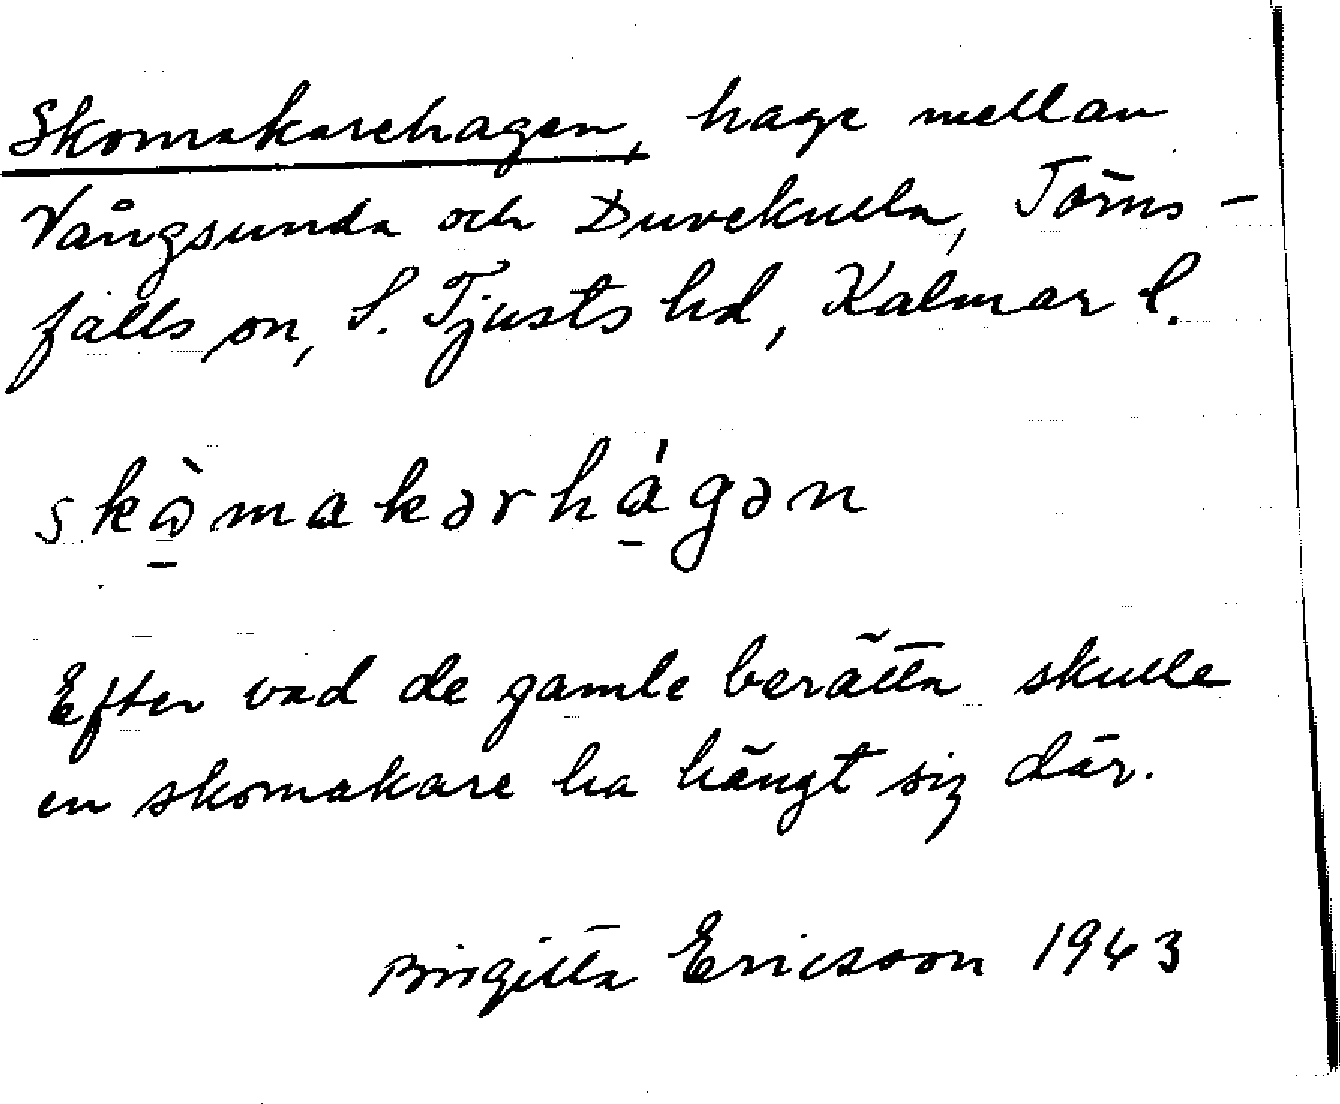 Skomakarehagen, hage mellan
Vångsunda och Duvekulla, Törns-
falls sn, S. Tjusts hd, Kalmar l.
skò̠makərhá̠gən
Efter vad de gamle berätta skulle
en skomakare ha hängt sig där.
Birgitta Ericsson 1943